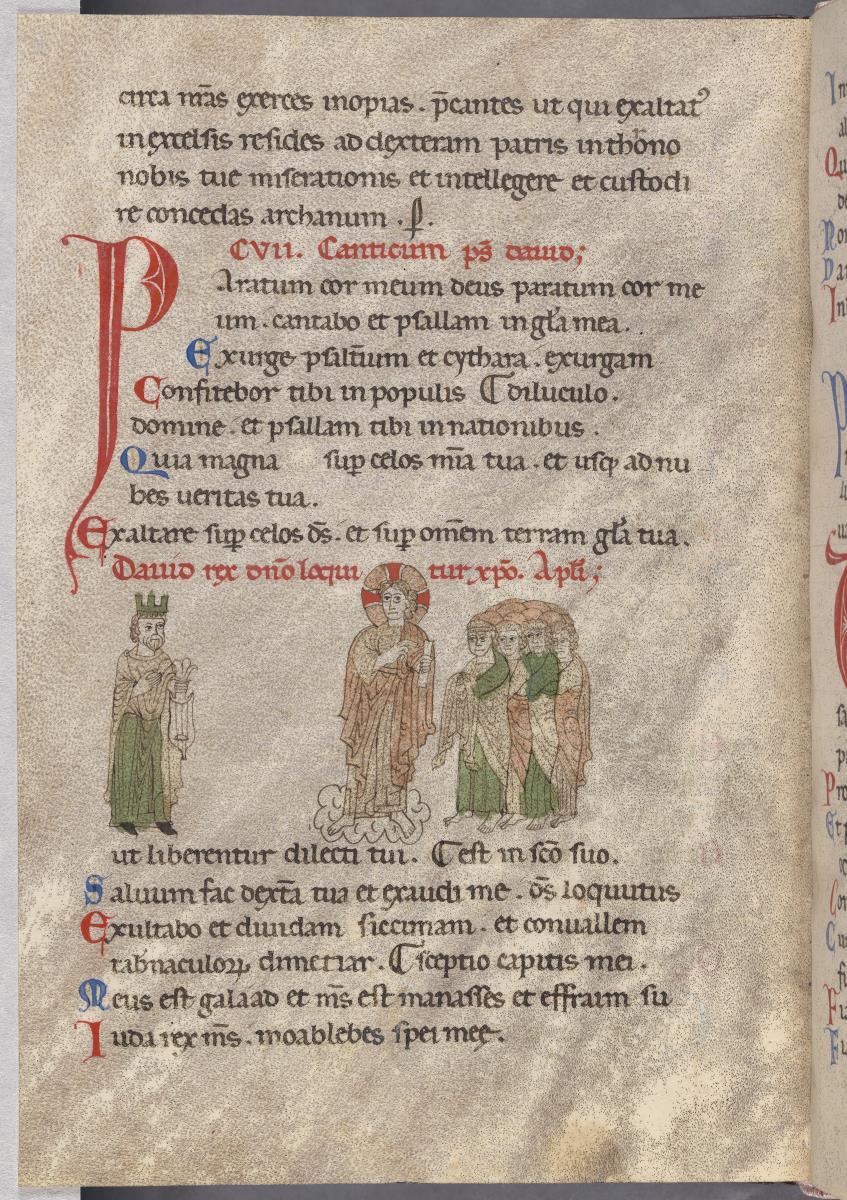 circa nr̄as exerces inopias. p̄cantes ut qui exaltatꝰ
in excelsis resides ad dexteram patris in throno
nobis tue miserationis et intellegere et custodi
re concedas archanum. p̄.
CVII. Canticum ps̄ dauid;
Paratum cor meum deus paratum cor me
um. cantabo et psallam in gl̄a mea.
Exurge psalt̄ium et cythara. exurgam
Confitebor tibi in populis diluculo.
domine. et psallam tibi in nationibus.
Quia magna sup̄ celos m̄ia tua. et usq; ad nu
bes ueritas tua.
Exaltare sup̄ celos d̄s. et sup̄ omēm terram gl̄a tua.
Dauid rex dn̄o loqui tur xp̄o. Apl̄i;
ut liberentur dilecti tui. est in sc̄o suo.
Saluum fac dext̄a tua et exaudi me. d̄s loquutus
Exultabo et diuidam siccimam. et conuallem
tab̄naculoꝝ dimetiar. sceptio capitis mei.
Meus est galaad et m̄s est manasses et effraim su
Iuda rex m̄s. moab lebes spei mee.